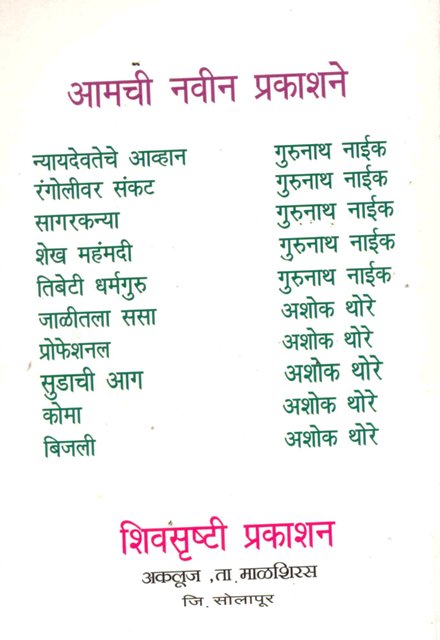 आमची नवीन प्रकाशने
न्यायदेवतेचे आव्हान गुरुनाथ नाईक
रंगोलीवर संकट गुरुनाथ नाईक
सागरकन्या गुरुनाथ नाईक
शेख महंमदी गुरुनाथ नाईक
तिबेटी धर्मगुरु गुरुनाथ नाईक
जाळीतला ससा अशोक थोरे
प्रोफेशनल अशोक थोरे
सुडाची आग अशोक थोरे
कोमा अशोक थोरे
बिजली अशोक थोरे
शिवसृष्टी प्रकाशन
अकलूज ,ता.माळशिरस
जि.सोलापूर